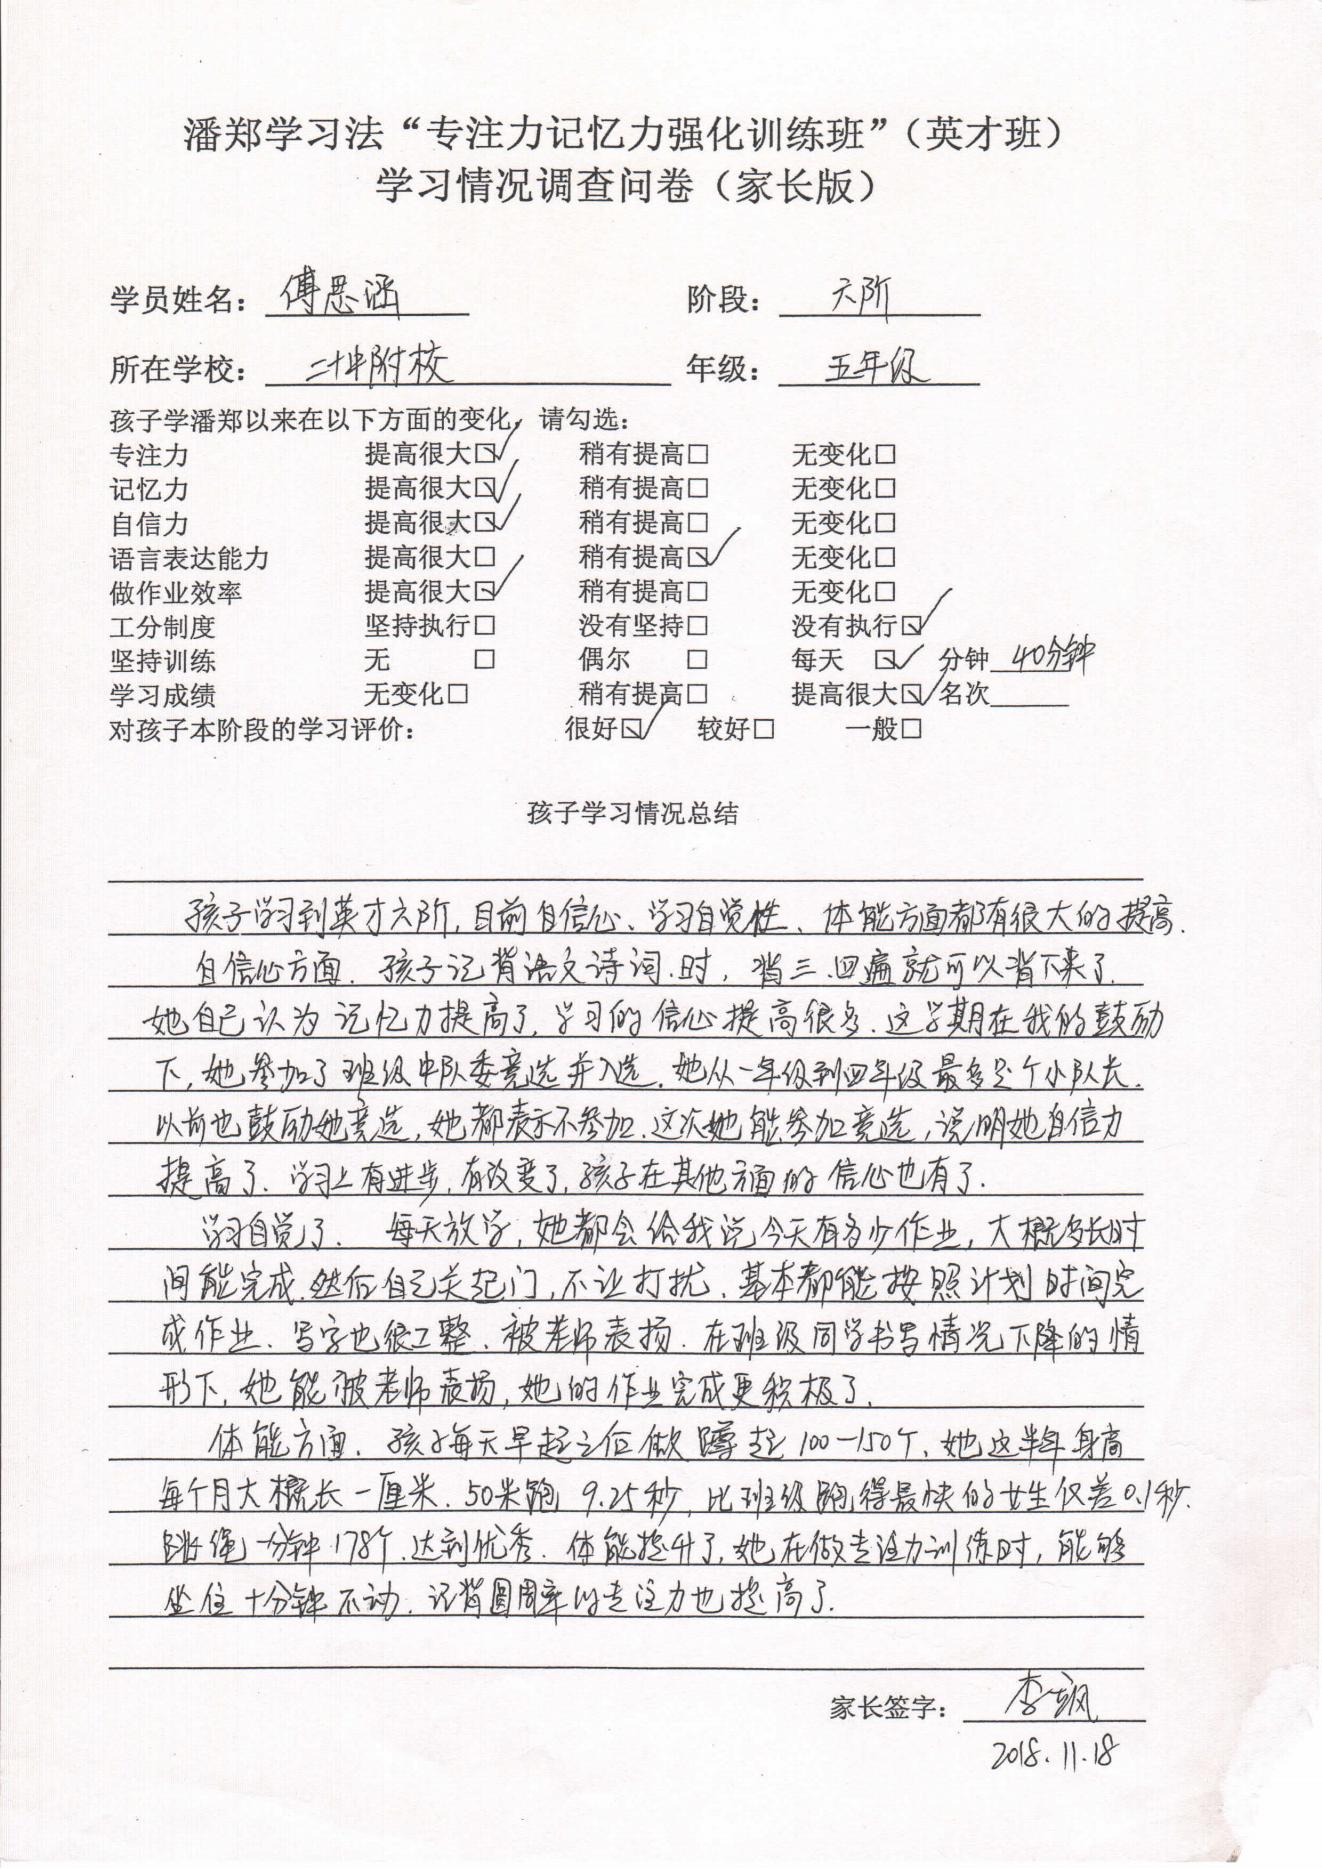 潘郑学习法“专注力记忆力强化训练班”（英才班）
学习情况调查问卷（家长版）
学员姓名：傅思涵 阶段：六阶
所在学校：二十中附校 年级：五年级
孩子学潘郑以来在以下方面的变化，请勾选：
专注力 提高很大☑ 稍有提高□ 无变化□
记忆力 提高很大☑ 稍有提高□ 无变化□
自信力 提高很大☑ 稍有提高□ 无变化□
语言表达能力 提高很大□ 稍有提高☑ 无变化□
做作业效率 提高很大☑ 稍有提高□ 无变化□
工分制度 坚持执行□ 没有坚持□ 没有执行☑
坚持训练 无 □ 偶尔 □ 每天 ☑ 分钟 40分钟
学习成绩 无变化□ 稍有提高□ 提高很大☑ 名次
对孩子本阶段的学习评价： 很好☑ 较好□ 一般□
孩子学习情况总结
孩子学习到英才六阶，目前自信心、学习自觉性、体能方面都有很大的提高.
自信心方面. 孩子记背语文诗词.时，背三.四遍就可以背下来了.
她自己认为记忆力提高了，学习的信心提高很多.这学期在我的鼓励
下，她参加了班级中队委竞选并入选.她从一年级到四年级最多是个小队长.
以前也鼓励她竞选，她都表示不参加.这次她能参加竞选，说明她自信力
提高了.学习上有进步，有改变了，孩子在其他方面的信心也有了.
学习自觉了. 每天放学，她都会给我说今天有多少作业，大概多长时
间能完成.然后自己关起门，不让打扰.基本都能按照计划时间完
成作业.写字也很工整.被老师表扬.在班级同学书写情况下降的情
形下，她能被老师表扬，她的作业完成更积极了.
体能方面. 孩子每天早起之后做蹲起100-150个.她这半年身高
每个月大概长一厘米.50米跑9.25秒，比班级跑得最快的女生仅差0.1秒.
跳绳一分钟178个.达到优秀.体能提升了，她在做专注力训练时，能够
坐住十分钟不动.记背圆周率的专注力也提高了.
家长签字：李飒
2018.11.18